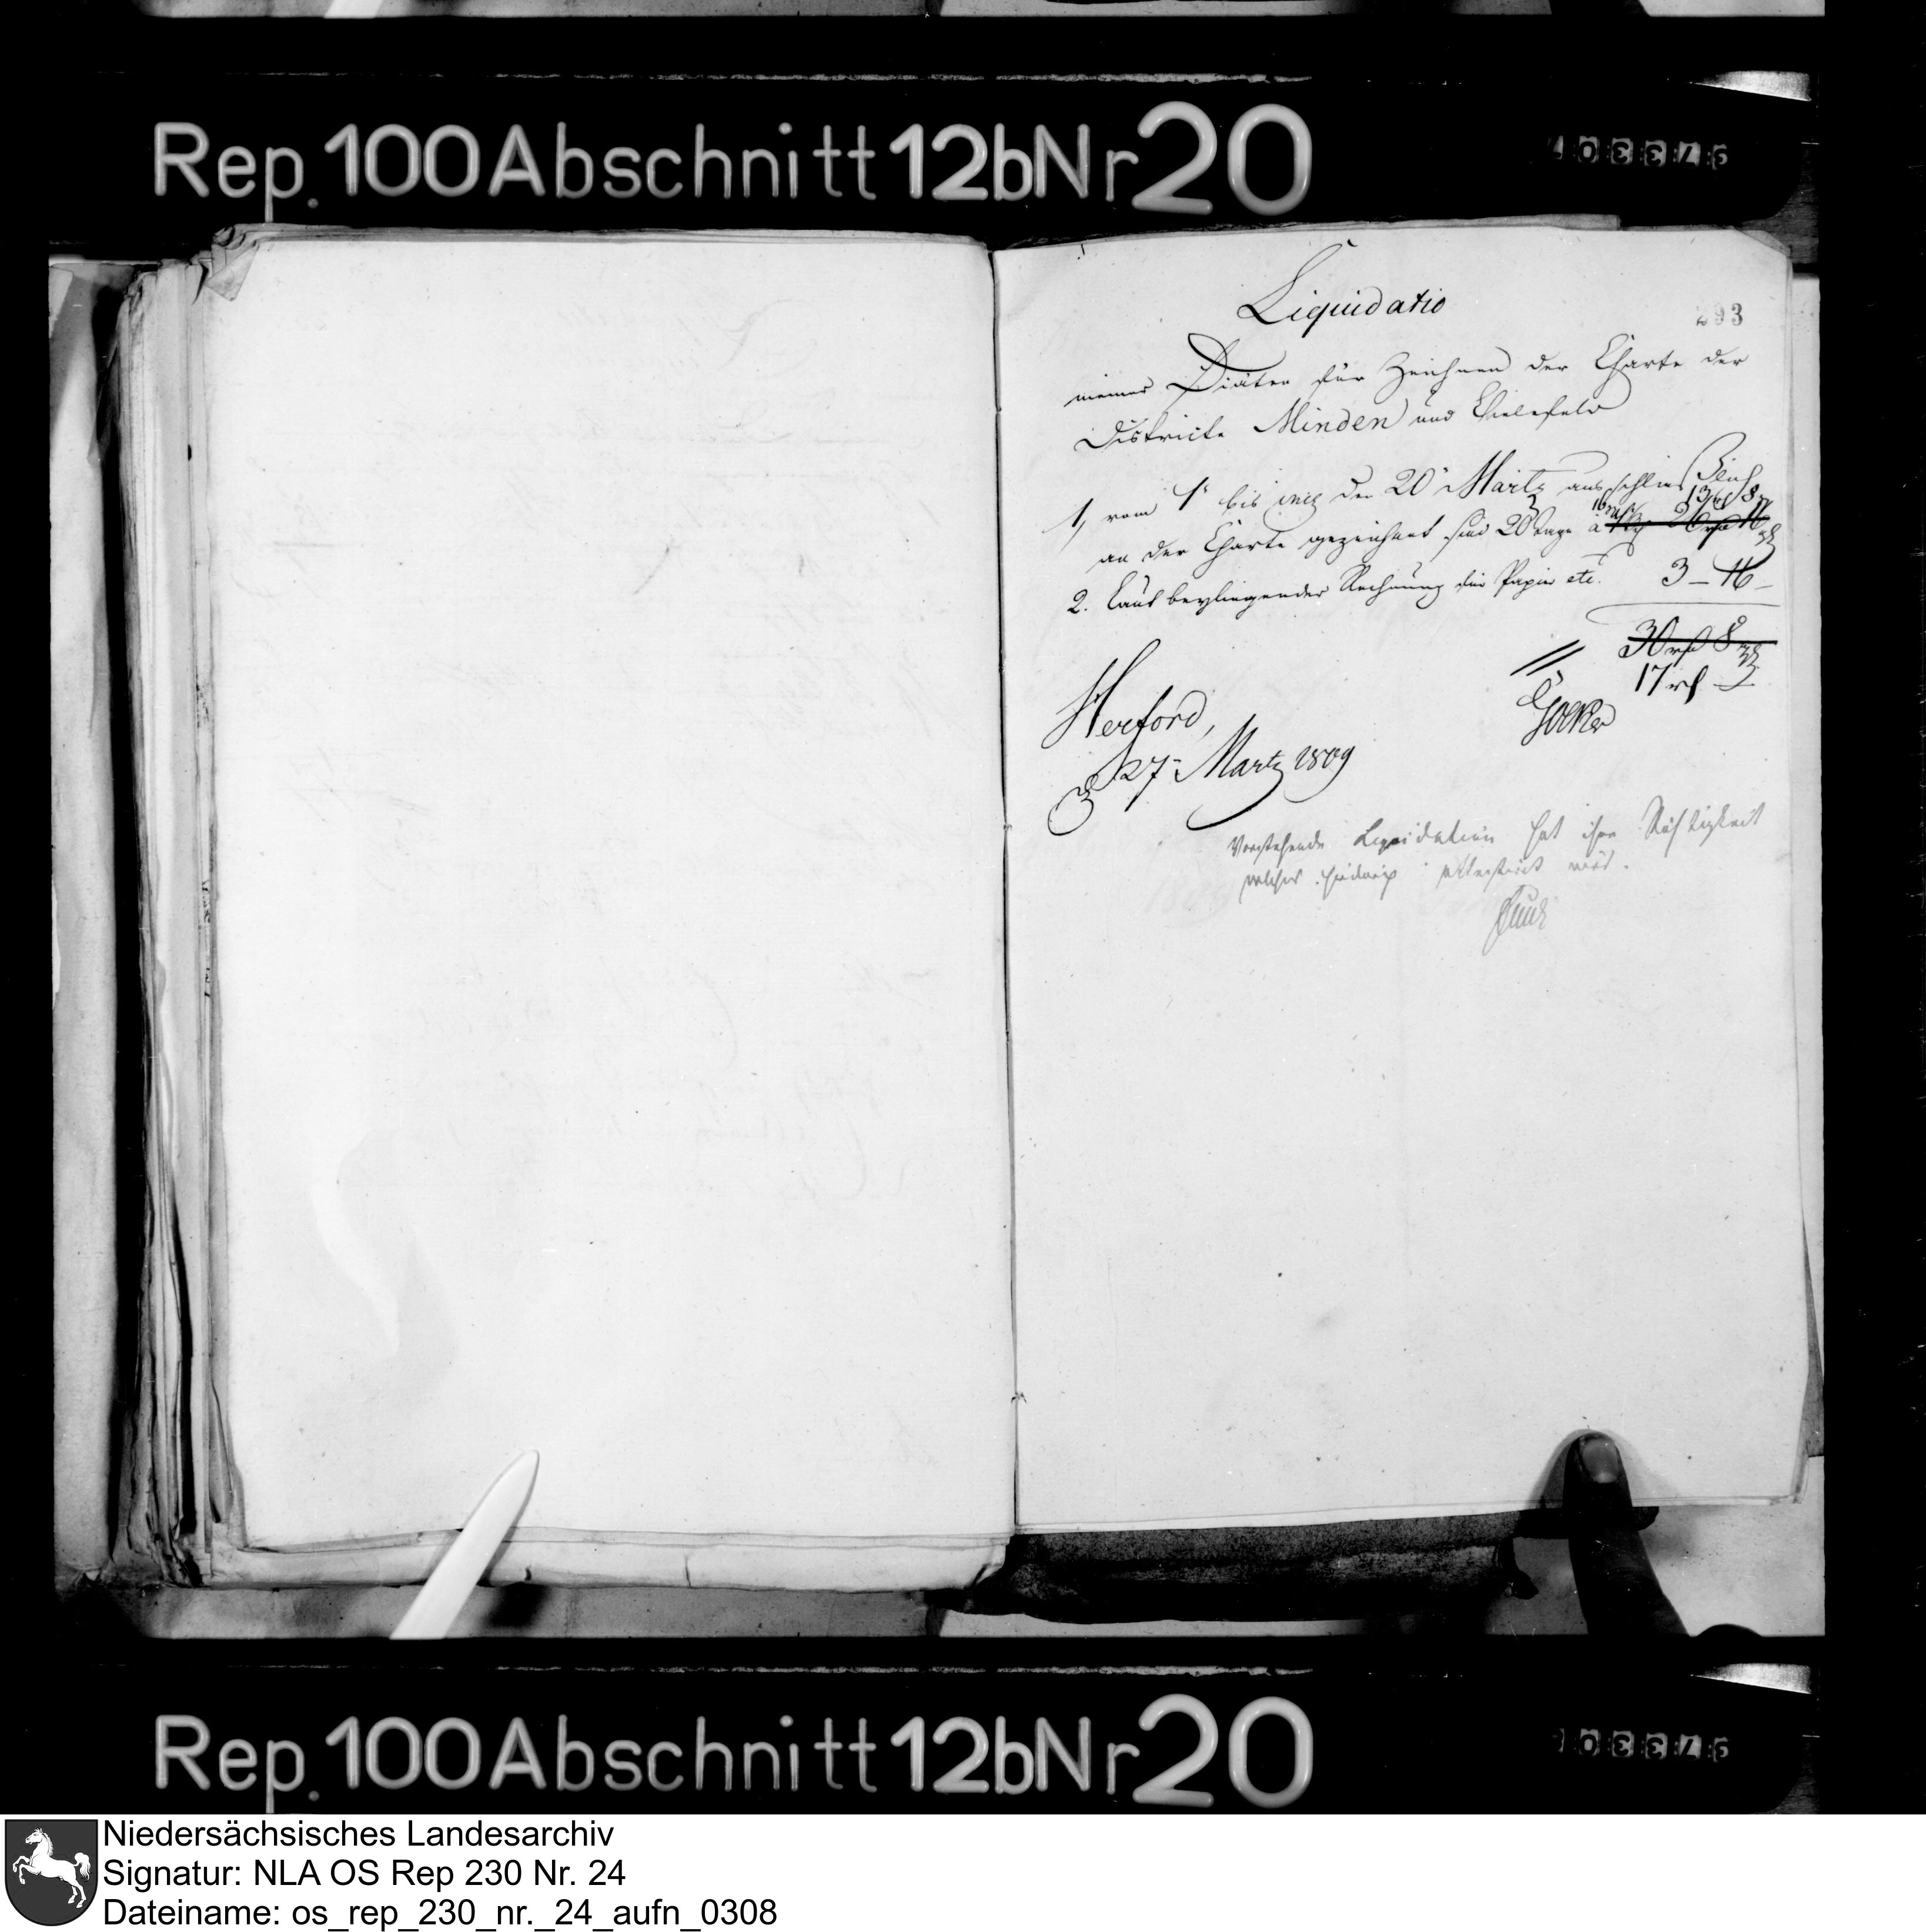 Rep. 100 Abschnitt 12b Nr 20
Liquidatio
293
meiner Diäten für Zeichnen der Charte der
Districte Minden und Bielefeld
1, vom 1t bis incl den 20t Märtz ausschließlich
13 rl 8
an der Charte gezeichnet sind 20 Tage à 26 rl 16
2. Laut beyliegender Rechnung für Papier etc. 3 – 16 –
30 rl 8
17 rl –
Herford,
27t Martz 1809
Vorstehende Liquidation hat ihre Richtigkeit
welches hiedurch attestirt wird.
Rep. 100 Abschnitt 12b Nr 20
Niedersächsisches Landesarchiv
Signatur: NLA OS Rep 230 Nr. 24
Dateiname: os_rep_230_nr._24_aufn_0308